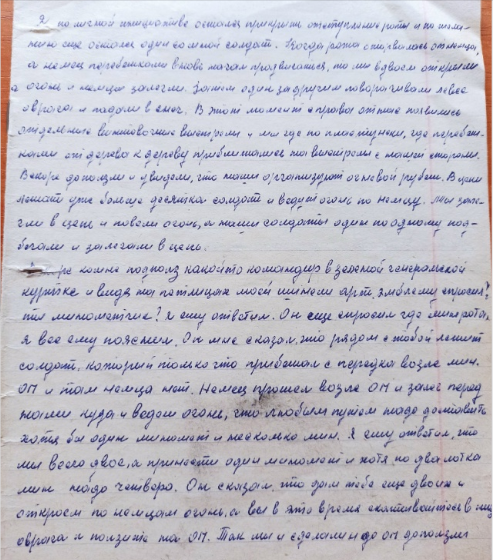 Я по личной инициативе остался прикрыть отступление роты и по
мимо еще остался один солдат. Когда рота оторвалась от немца,
а немец перебежками вновь начал продвигаться, то мы вдвоем открыли
огонь и немцы залегли. Затем один за другим поворачивали левее
оврага и падали в снег. В этот момент справа от нас появились
отдельные винтовочные выстрелы и мы где по пластунски, где перебеж-
ками от дерева к дереву приблизились на выстрелы с нашей стороны.
Вскоре доползли и увидели, что наши организуют огневой рубеж. В цепи
лежат уже больше десятка солдат и ведут огонь по немцу. Мы залег-
ли в цепи и повели огонь, а наши солдаты один по одному под-
бегали и залегали в цепи.
ко мне подполз какой то командир в зеленой генеральской
куртке и видя на петлицах моей шинели арт. эмблему спросил?
ты минометчик? Я ему ответил. Он еще спросил где мин. рота,
я все ему пояснил. Он мне сказал, что рядом с тобой лежит
солдат, который только что прибежал с передка возле мин.
ОП и там немца нет. Немец прошел возле ОП и залег перед
нами куда и ведем огонь, что любым путем надо доставить
хотя бы один миномет и несколько мин. Я ему ответил, что
мы всего двое, а принести один миномет и хотя по два лотка
мин надо четверо. Он сказал, что дам тебе еще двоих и
откроем по немцам огонь, а вы в это время скатывайтесь в низ
оврага и ползите на ОП. Так мы и сделали и до ОП доползли